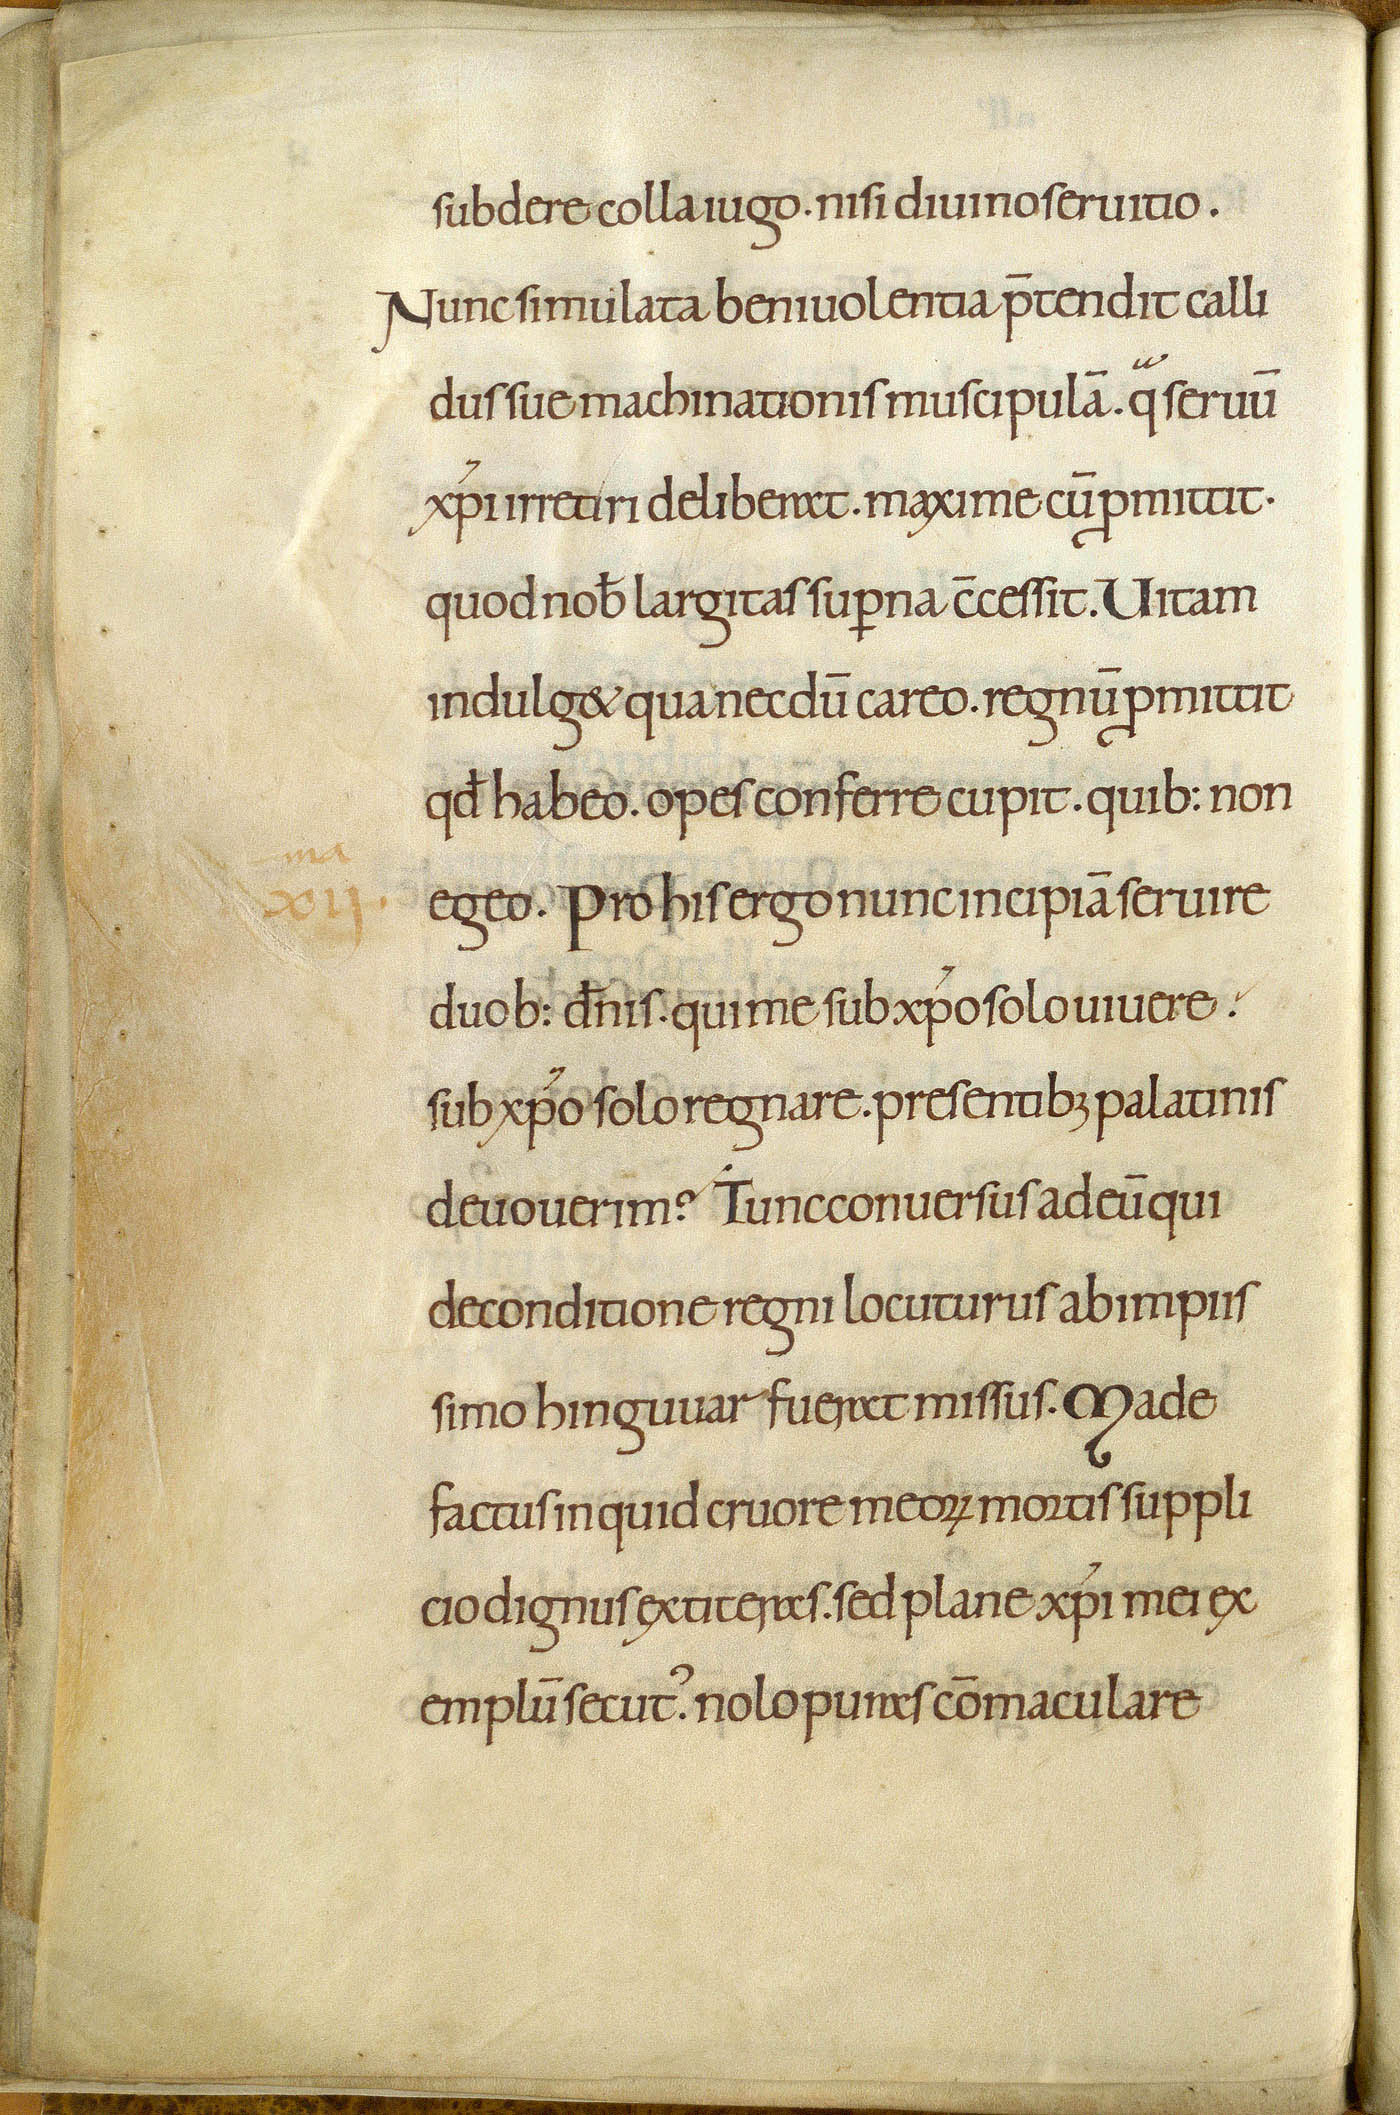 subdere colla iugo. nisi diuino seruitio.
Nunc simulata beniuolentia p̄tendit calli
dus sue machinationis muscipulā. qͣ seruū
xp̓i irretiri deliberat. maxime cū ꝓmittit.
quod nob̄ largitas suꝑna c̄cessit. Uitam
indulg& qua necdū careo. regnū ꝓmittit
qd̄ habeo. opes conferre cupit. quib: non
egeo. Pro his ergo nunc incipiā seruire
duob: dn̄is. qui me sub xp̓o solo uiuere.
sub xp̓o solo regnare. presentibꝫ palatinis
deuouerim? Tunc conuersus ad eū qui
deconditione regni locuturus ab impiis
simo hinguuar fuerat missus. Made
factus inquid cruore meoꝝ mortis suppli
cio dignus extiteras. sed plane xp̓i mei ex
emplū secut᾿. nolo puras cōmaculare